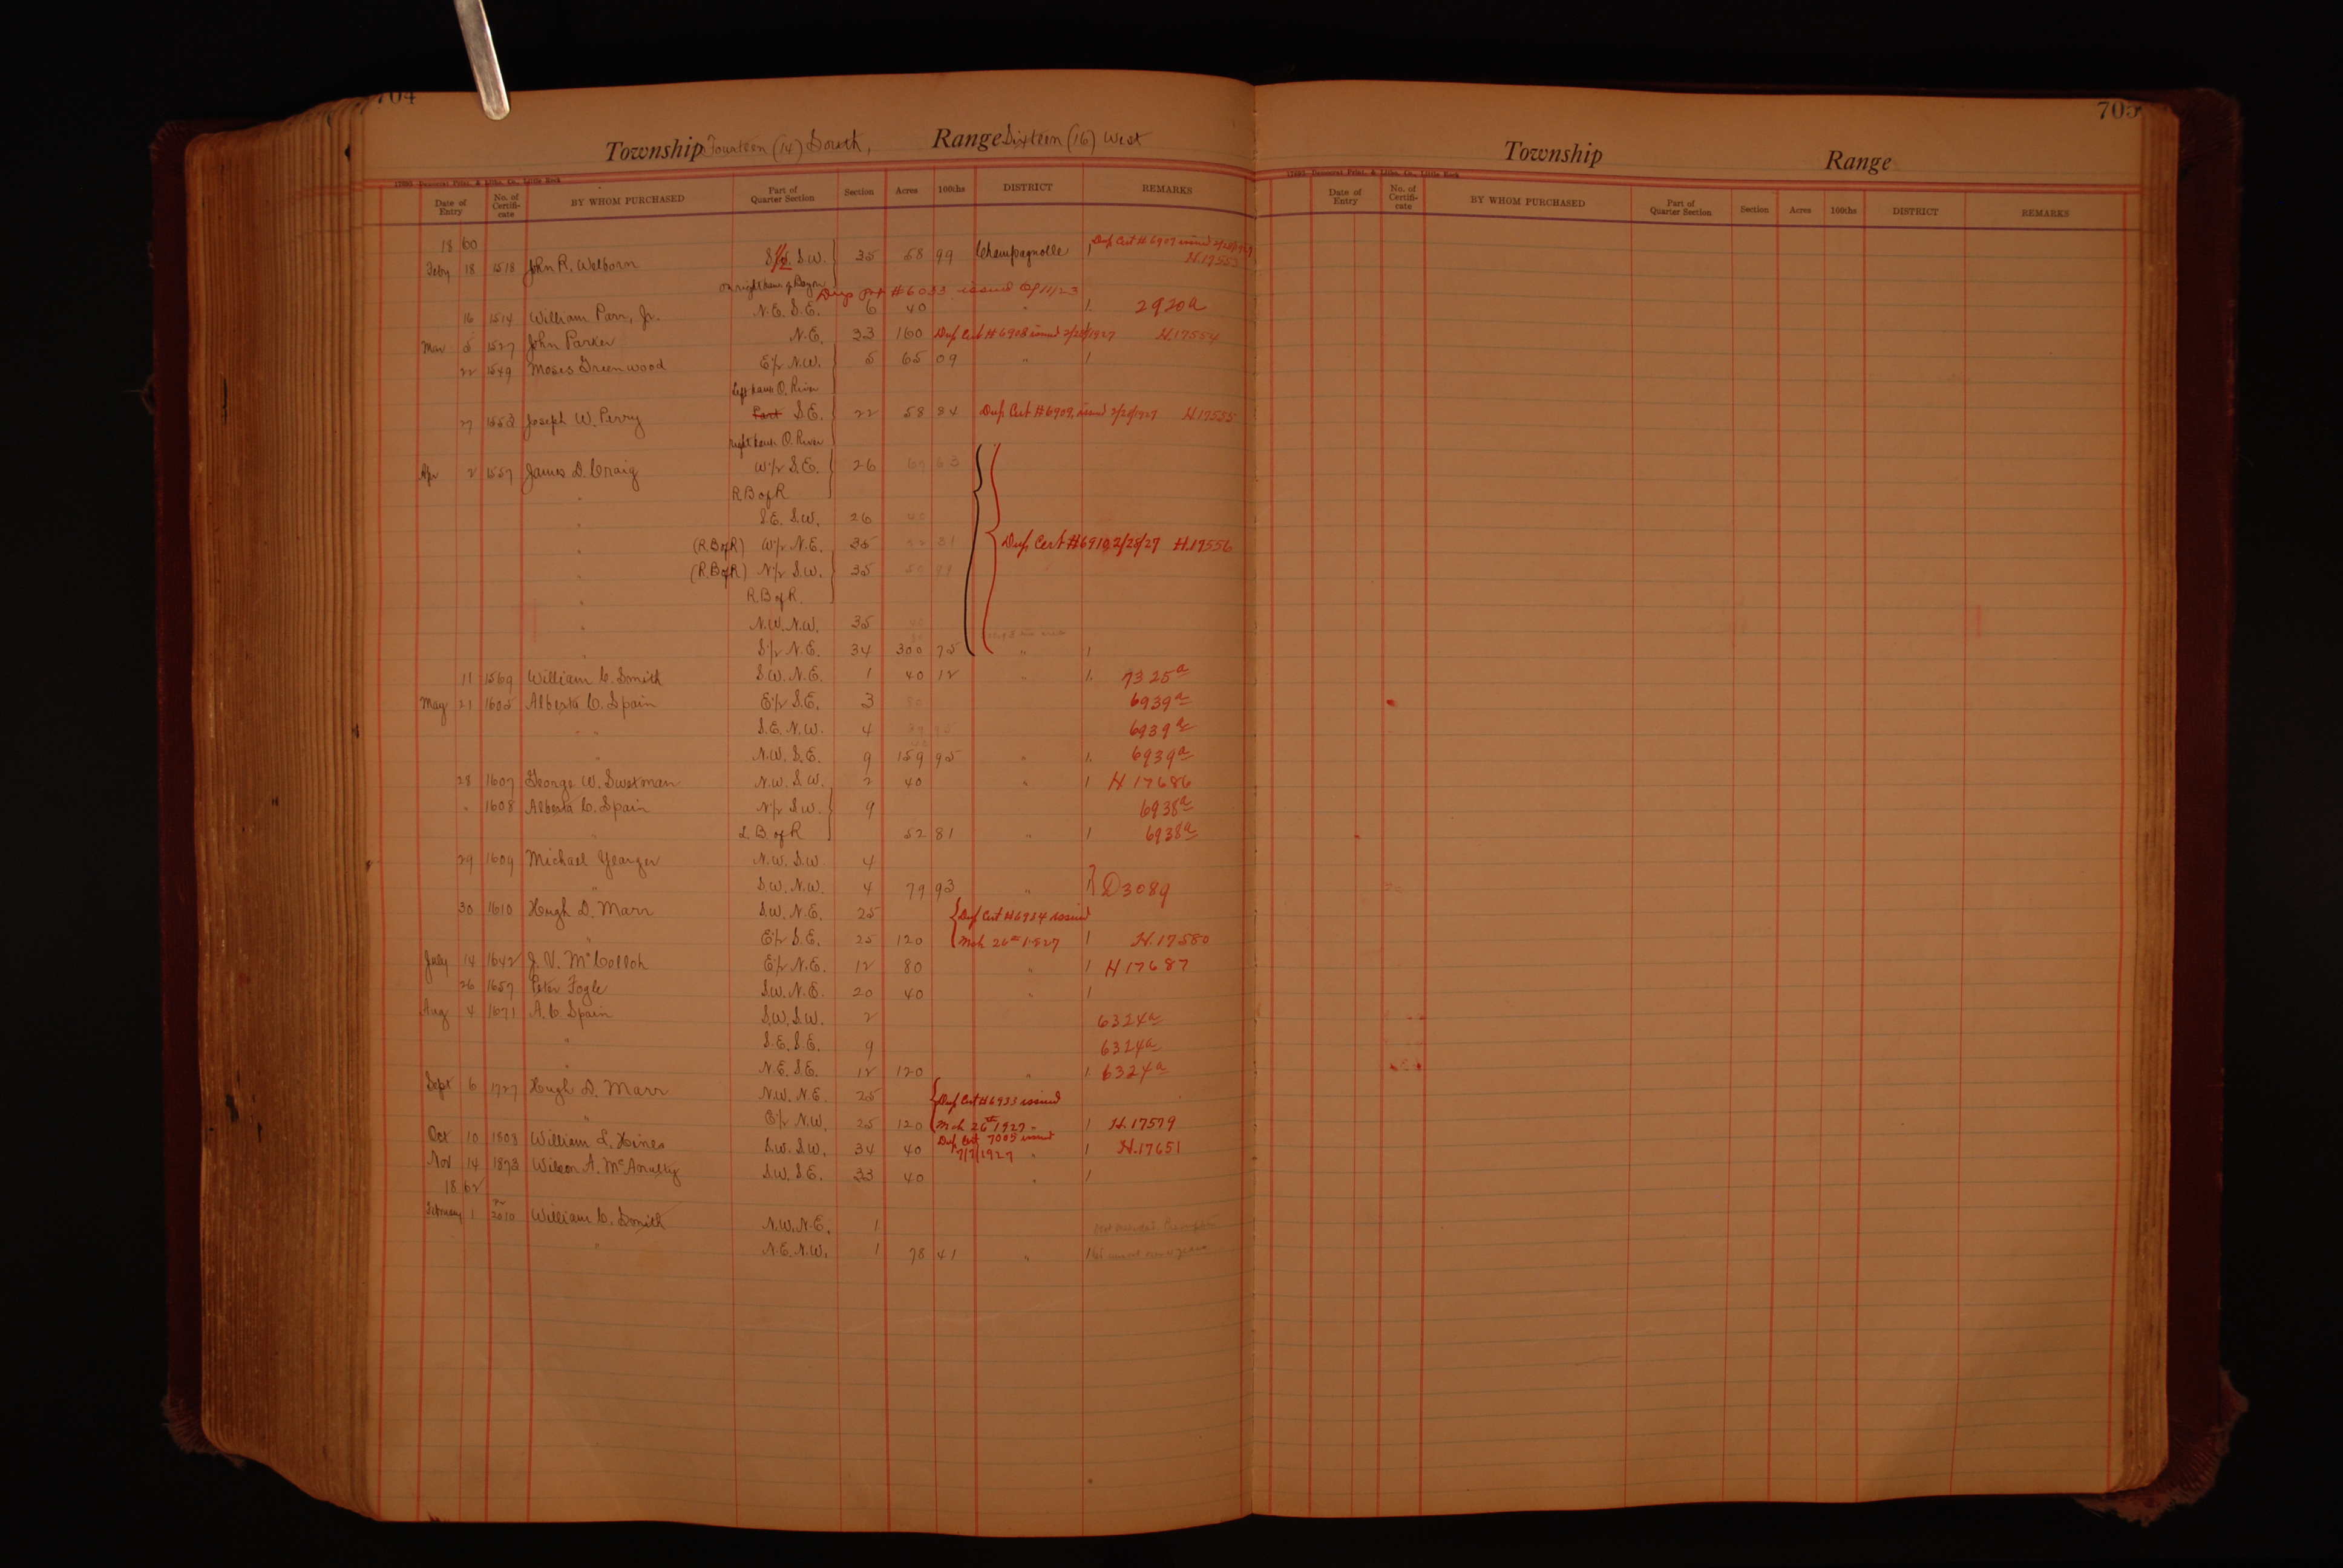 704
Township Fourteen (14) South, Range Sixteen (16) West
Date of Entry No. of Certifi-cate BY WHOM PURCHASED Part of Quarter Section Section Acres 100ths DISTRICT REMARKS
1860
Feby 18 1518 John R. Welborn S 1/2 S.W. 35 58 99 Champagnolle 1 Dup Cert # 6907 issued 2/28/1927
H.17553
on right bank of Bayou Dup Cert #6033 issued
16 1514 William Parr, Jr. N.E. S.E. 6 40 " 1. 2920a
Mar 5 1527 John Parker N.E. 33 160 Dup Cert # 6908 issued 2/28/1927 H.17554
22 1549 Moses Greenwood E½ N.W. 5 65 09 " 1
Left bank O. River
27 1553 Joseph W. Perry Part S.E. 22 58 84 Dup Cert #6909, issued 2/28/1927 H.17555
right bank O. River
Apr 2 1557 James D. Craig W½ S.E. 26 69 63
" R.B of R
" S.E. S.W. 26 40
" (R.B of R) W½ N.E. 35 31 Dup Cert #6910, 2/28/27 H.17556
" (R.B of R) N½ S.W. 35 50 99
" R.B of R.
" N.W. N.W. 35 40
" S½ N.E. 34 300 75 " 1
11 1569 William C. Smith S.W. N.E. 1 40 12 " 1. 7325a
May 21 1605 Alberta C. Spain E½ S.E. 3 80 6939a
" " S.E. N.W. 4 39 95 6939a
" N.W. S.E. 9 159 95 " 1. 6939a
28 1607 George W. Swetman N.W. S.W. 2 40 " 1 H 17686
" 1608 Alberta C. Spain N½ S.W. 9 6938a
" L.B of R 52 81 " 1 6938a
29 1609 Michael Yearger N.W. S.W. 4
" S.W. N.W. 4 79 93 " 1 D3089
30 1610 Hugh D. Marr S.W. N.E. 25 Dup Cert #6934 issued
" E½ S.E. 25 120 Mch 26th 1927 1 H.17580
July 14 1642 J. V. McColloh E½ N.E. 12 80 " 1 H 17687
26 1657 Peter Fogle S.W. N.E. 20 40 " 1
Aug 4 1671 A. C. Spain S.W. S.W. 2 6324a
" S.E. S.E. 9 6324a
" N.E. S.E. 12 120 " 1 6324a
Sept 6 1727 Hugh D. Marr N.W. N.E. 25 Dup Cert #6933 issued
" E½ N.W. 25 120 Mch 26th 1927 - 1 H.17579
Oct 10 1808 William L. Hines S.W. S.W. 34 40 Dup Cert 7005 issued 7/7/1927 " 1 H.17651
Nov 14 1873 Wilson A. McAnulty S.W. S.E. 33 40 " 1
1862
February 1 2010 William C. Smith N.W. N.E. 1
" N.E. N.W. 1 78 41 " 1
705
Township Range
Date of Entry No. of Certifi-cate BY WHOM PURCHASED Part of Quarter Section Section Acres 100ths DISTRICT REMARKS